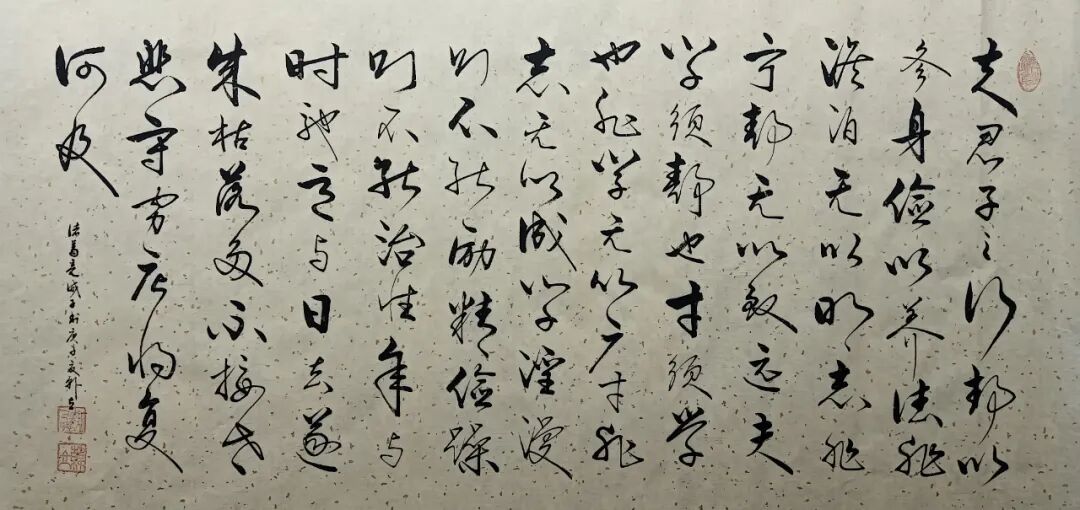 夫君子之行静以
修身俭以养德非
澹泊无以明志非
宁静无以致远夫
学须静也才须学
也非学无以广才非
志无以成学淫漫
则不能励精俭躁
则不能治性年与
时驰意与日去遂
成枯落多不接世
悲守穷庐将复
何及
诸葛亮诫子书庚子夏